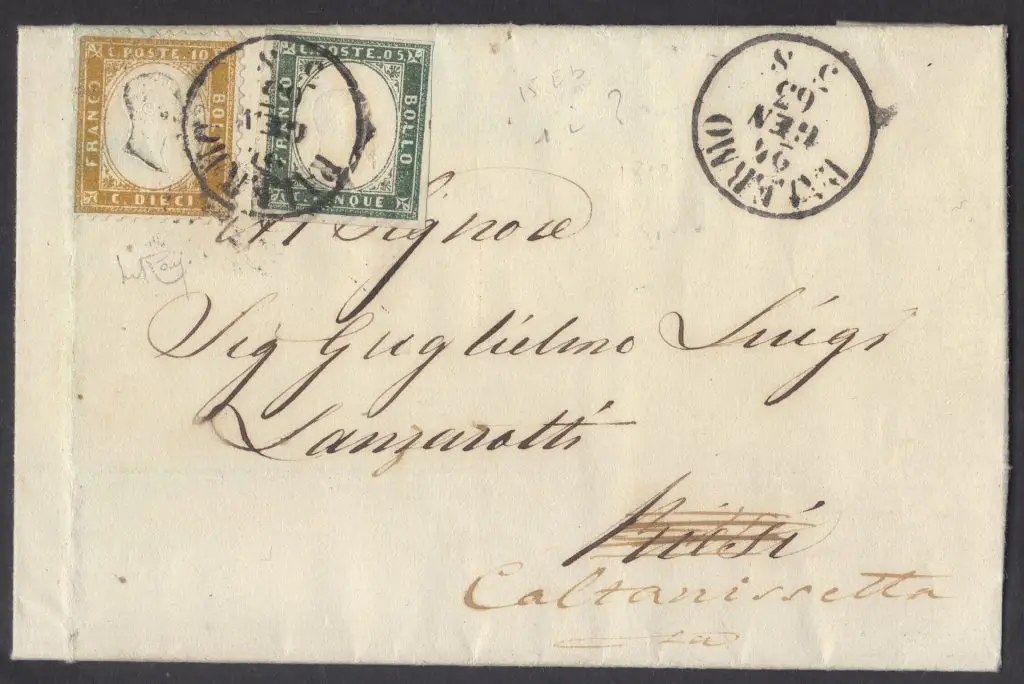 C. POSTE. 10
FRANCO
BOLLO
C. DIECI
C. POSTE. 05
FRANCO
BOLLO
C. CINQUE
PALERMO
26
GEN
63
3 S
Al Signore
Sig Guglielmo Luigi
Lanzarotti
Riesi
Caltanissetta